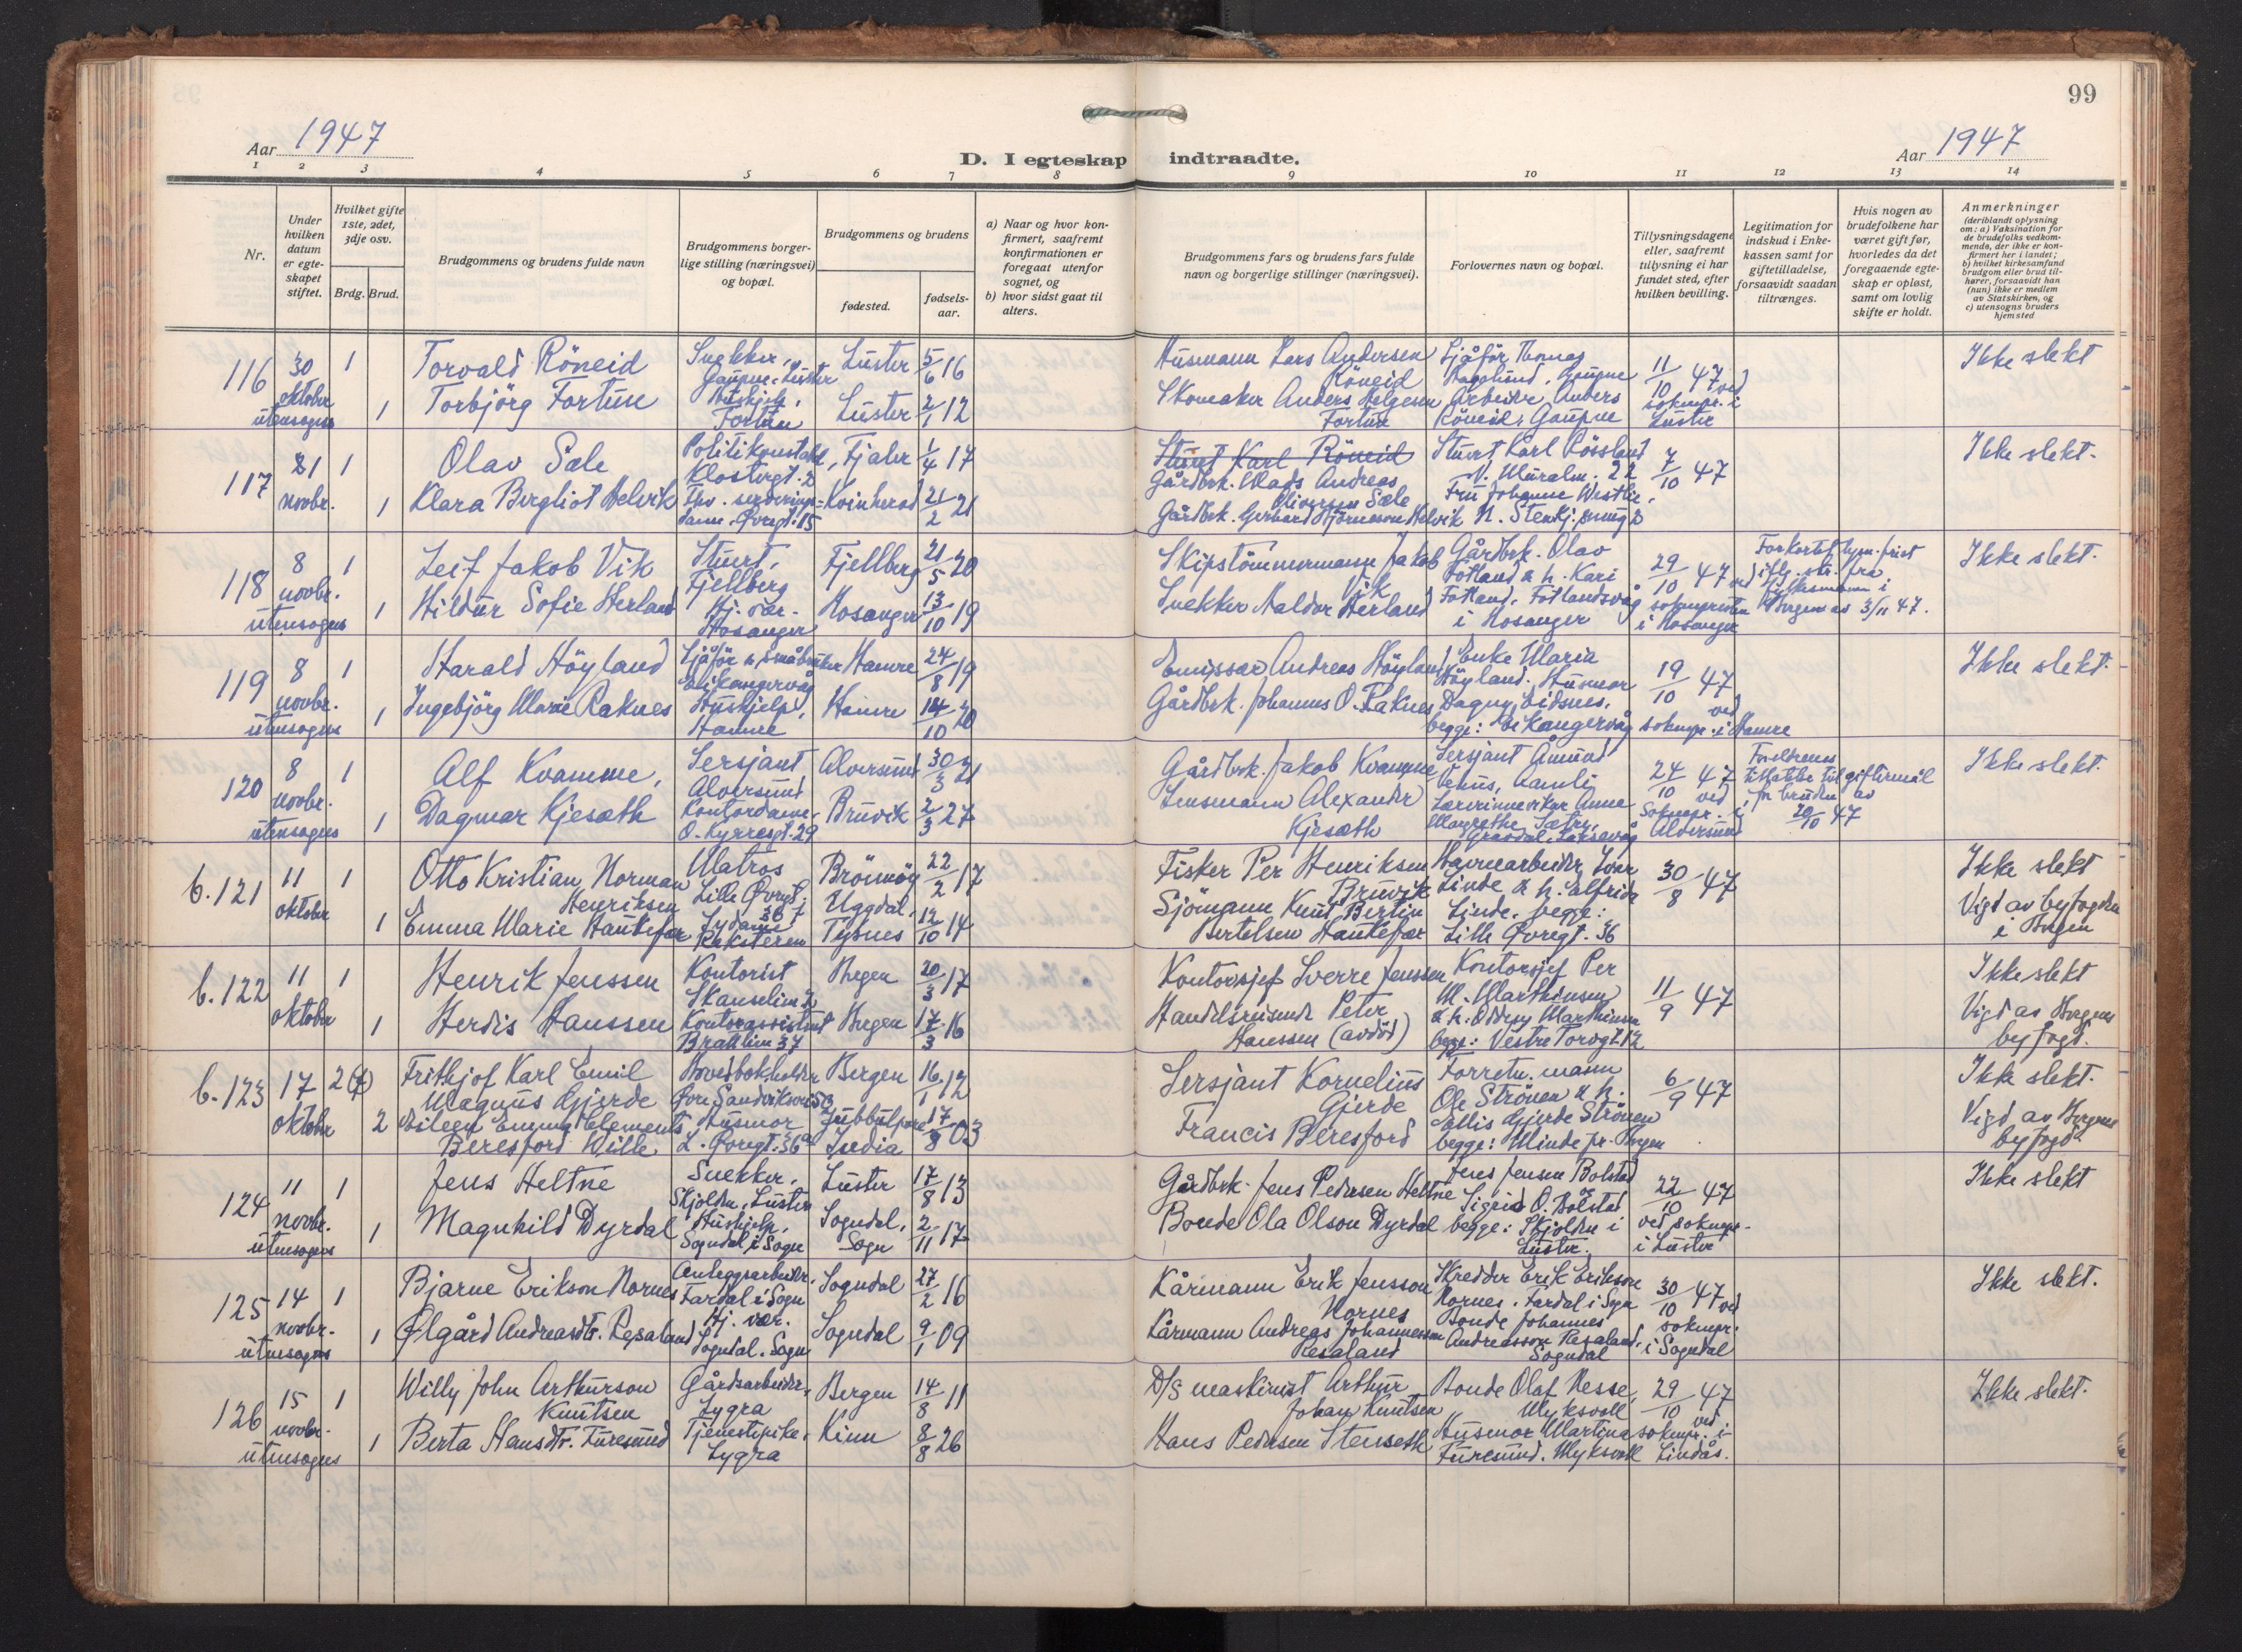 99
Aar 1947
D. I egteskap indtraadte.
Aar 1947
1 2 3 4 5 6 7 8 9 10 11 12 13 14
Nr.
Under hvilken datum er egteskapet stiftet.
Hvilket gifte 1ste, 2det, 3dje osv.
Brdg. Brud.
Brudgommens og brudens fulde navn
Brudgommens borgerlige stilling (næringsvei) og bopæl.
Brudgommens og brudens
fødested.
fødselsaar.
a) Naar og hvor konfirmert, saafremt konfirmationen er foregaat utenfor sognet, og
b) hvor sidst gaat til alters.
Brudgommens fars og brudens fars fulde navn og borgerlige stillinger (næringsvei).
Forlovernes navn og bopæl.
Tillysningsdagene eller, saafremt tillysning ei har fundet sted, efter hvilken bevilling.
Legitimation for indskud i Enkekassen samt for giftetilladelse, forsaavidt saadan tiltrænges.
Hvis nogen av brudefolkene har været gift før, hvorledes da det foregaaende egteskap er opløst, samt om lovlig skifte er holdt.
Anmerkninger
(deriblandt oplysning om: a) Vaksination for de brudefolks vedkommende, der ikke er konfirmert her i landet; b) hvilket kirkesamfund brudgom eller brud tilhører, forsaavidt han (hun) ikke er medlem av Statskirken, og c) utensogns bruders hjemsted
116 30 oktober utensogns 1 Torvald Röneid Snekker, Gaupne, Luster Luster 5/6 16 Husmann Lars Andersen Röneid Sjåför Thomas 11/10 47 ved soknepr. i Luster Ikke slekt
1 Torbjörg Fortun Hushjelp, Fortun Luster 2/1 12 Skomaker Anders Helgesen Fortun Arbeider Anders Röneid, Gaupne
117 1 novbr. 1 Olav Sæle Politikonstabel, Klostergt. 2 Fjaler 1/4 17 Stuert Karl Röneid Gårdbrk. Mads Andreas Oliversen Sæle Stuert Karl Rössland N. Muralm. 22 7/10 47 Ikke slekt.
1 Klara Bergliot Helvik Kvinherad 21/2 21 Gårdbrk. Gerhard Helvik Fru Johanne Westlie,
118 8 novbr. utensogns 1 Leif Jakob Vik Stuert, Fjellberg Fjellberg 21/5 20 Skipstömmermann Jakob Vik Gårdbrk. Olav Fotland & h. Kari Fotland, Fotlandsvåg i Hosanger 29/10 47 ved soknepresten i Hosanger Bergen av 3/11 47. Ikke slekt.
1 Hildur Sofie Herland Hj. vær. Hosanger Hosanger 13/10 19 Snekker Haldor Herland
119 8 novbr. utensogns 1 Harald Höyland Sjåför & småbruker Eikangervåg Hamre 24/8 19 Emissær Andreas Höyland Enke Maria Höyland. Husmor Dagny Eidsnes, begge: Eikangervåg 19/10 47 ved soknepr. i Hamre Ikke slekt.
1 Ingebjörg Marie Raknes Hushjelp, Hamre Hamre 14/10 20 Gårdbrk. Johannes O. Raknes
120 8 novbr. utensogns 1 Alf Kvamme, Sersjant Alversund Alversund 30/3 21 Gårdbrk. Jakob Kvamme Sersjant Åmund 24/10 47 ved soknepr. i Alversund Foreldrenes tillatelse til giftermål for bruden av 20/10 47 Ikke slekt.
1 Dagmar Kjesæth Kontordame, O. Kyrresgt. 29 Bruvik 2/3 27 Lensmann Alexander Kjesæth Lærerinnevikar Anne Margrethe Sætre,
b. 121 11 oktober 1 Otto Kristian Norman Henriksen Matros Lille Øvregt. 36 Brönnöy 22/2 17 Fisker Per Henriksen Havnearbeider Linde & h. Elfrida Linde, begge: Lille Øvregt. 36 30/8 47 Ikke slekt
Vigd av byfogden i Bergen
1 Emma Marie Haukefær Sydame Uggdal, Tysnes 12/10 14 Sjömann Knut Bertin Bertelsen Haukefær
b. 122 11 oktober 1 Henrik Jenssen Kontorist Skanselien 2 Bergen 20/3 17 Kontorsjef Sverre Jenssen Kontorsjef Per M. Marthinsen & h. Oddny Marthinsen begge: Vestre Torvgt. 12 11/9 47 Ikke slekt
Vigd av Bergens byfogd.
1 Herdis Hanssen Kontorassistent Brattlien 37 Bergen 17/3 16 Handelsreisende Peter Hanssen (avdöd)
b. 123 17 oktober 2 Frithjof Karl Emil Magnus Gjerde Hovedbokholder Øvre Sandviksvei Bergen 16/1 12 Sersjant Kornelius Gjerde Forretn. mann Ole Strönen & h. Ellis Gjerde Strönen begge: Minde pr. Bergen 6/9 47 Ikke slekt.
Vigd av Bergens byfogd.
2 Eileen Emma Clements Beresford Wille Husmor L. Øvregt. 36a Jubbulpore India 17/8 03 Francis Beresford
124 11 novbr. utensogns 1 Jens Heltne Snekker, Skjolden, Luster Luster 17/8 13 Gårdbrk. Jens Pedersen Heltne Jens Jensen Bolstad og Sigrid O. Bolstad begge: Skjolden i Luster. 22/10 47 ved soknepr. i Luster Ikke slekt
1 Magnhild Dyrdal Hushjelp, Sogndal i Sogn Sogndal, Sogn 2/11 17 Bonde Ola Olson Dyrdal
125 14 novbr. utensogns 1 Bjarne Erikson Nornes Anleggsarbeider, Fardal i Sogn Sogndal 27/2 16 Kårmann Erik Jensson Nornes Skredder Erik Erikson Nornes. Fardal i Sogn 30/10 47 ved soknepr. i Sogndal Ikke slekt.
1 Ølgård Andreasdtr. Resaland Hj. vær. Sogndal. Sogn Sogndal 9/1 09 Kårmann Andreas Johannesson Resaland Bonde Johannes Andreasson Resaland, Sogndal
126 15 novbr. utensogns 1 Willy John Arthurson Knutsen Gårdsarbeider, Lygra Bergen 14/8 11 D/S maskinist Arthur Johan Knutsen Bonde Olaf Nesse, Myksvoll 29/10 47 ved soknepr. i Lindås. Ikke slekt.
1 Berta Hansdtr. Furesund Tjenestepike, Lygra Kinn 8/8 26 Hans Pedersen Stenseth Husmor Martina Furesund. Myksvoll